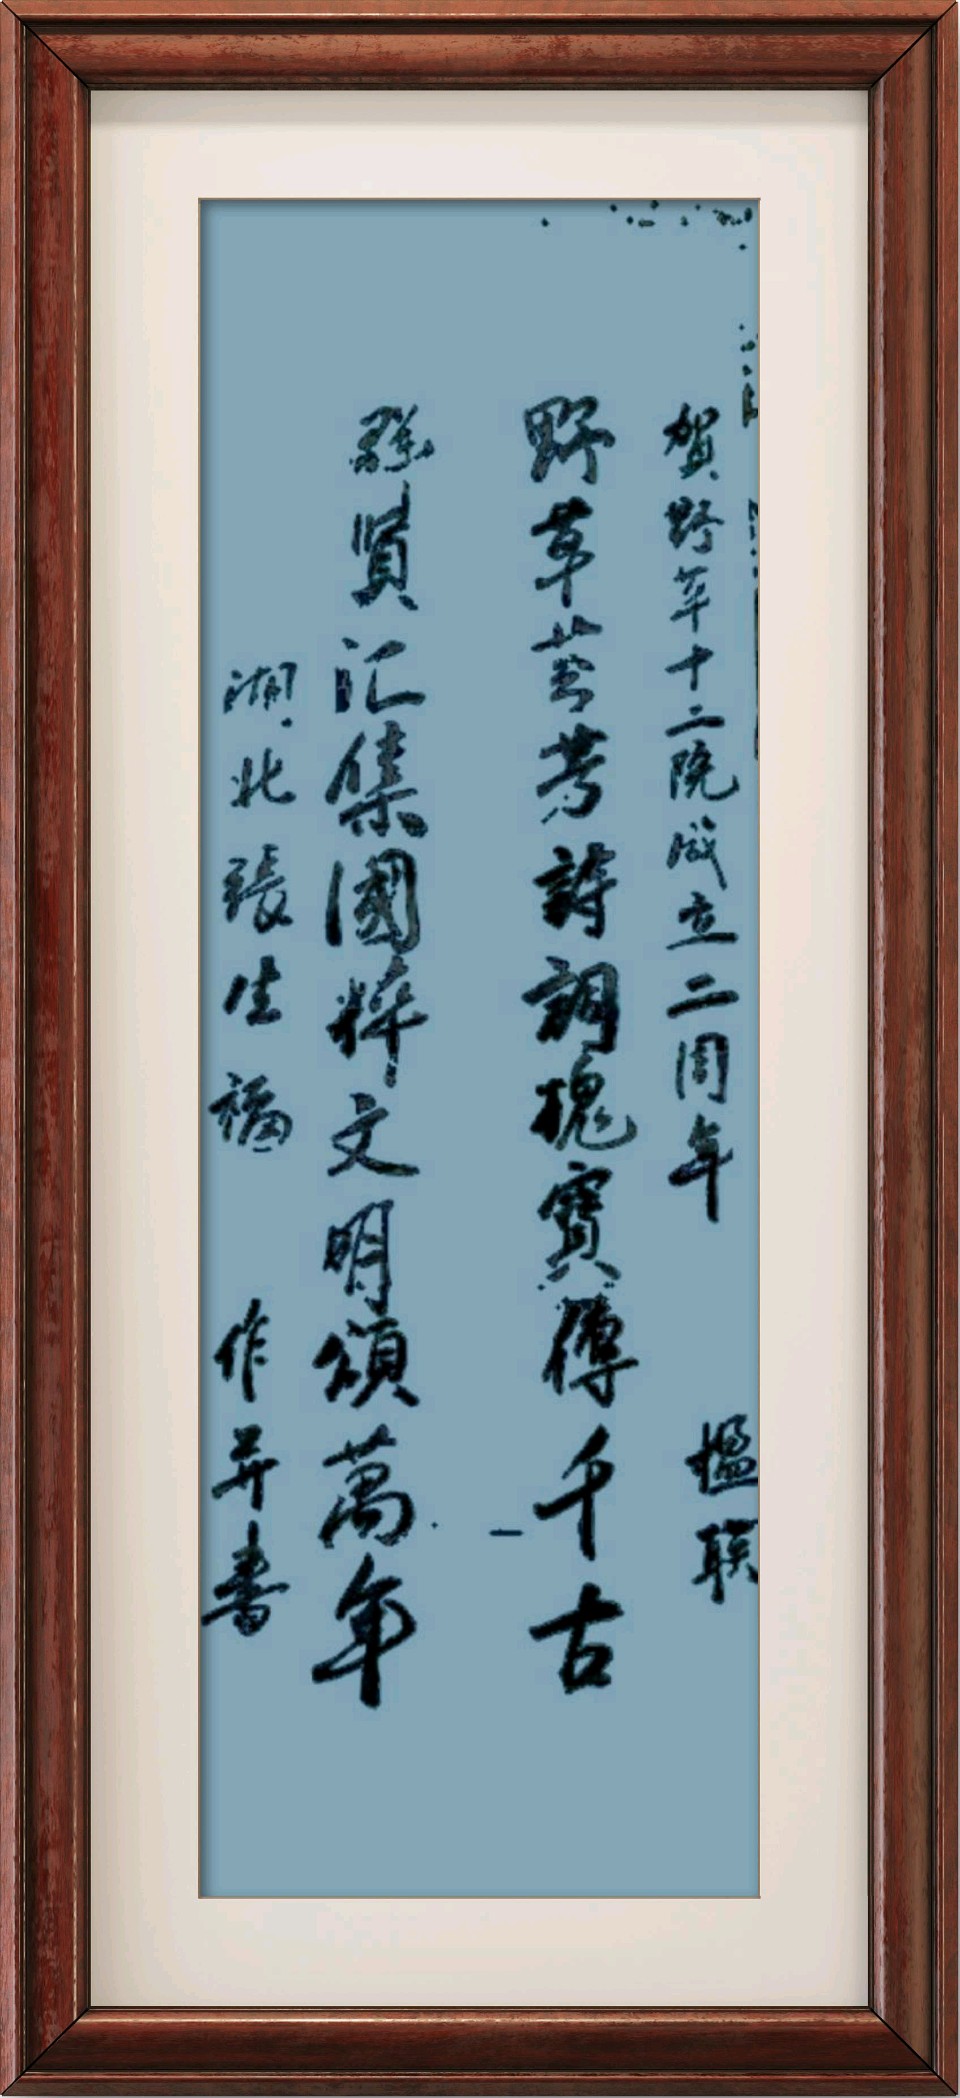 賀野草十二院成立二周年
楹联
野草芸芳詩詞瑰寶傳千古
賢汇集國粹文明頌萬年
湖北張生福 作并書